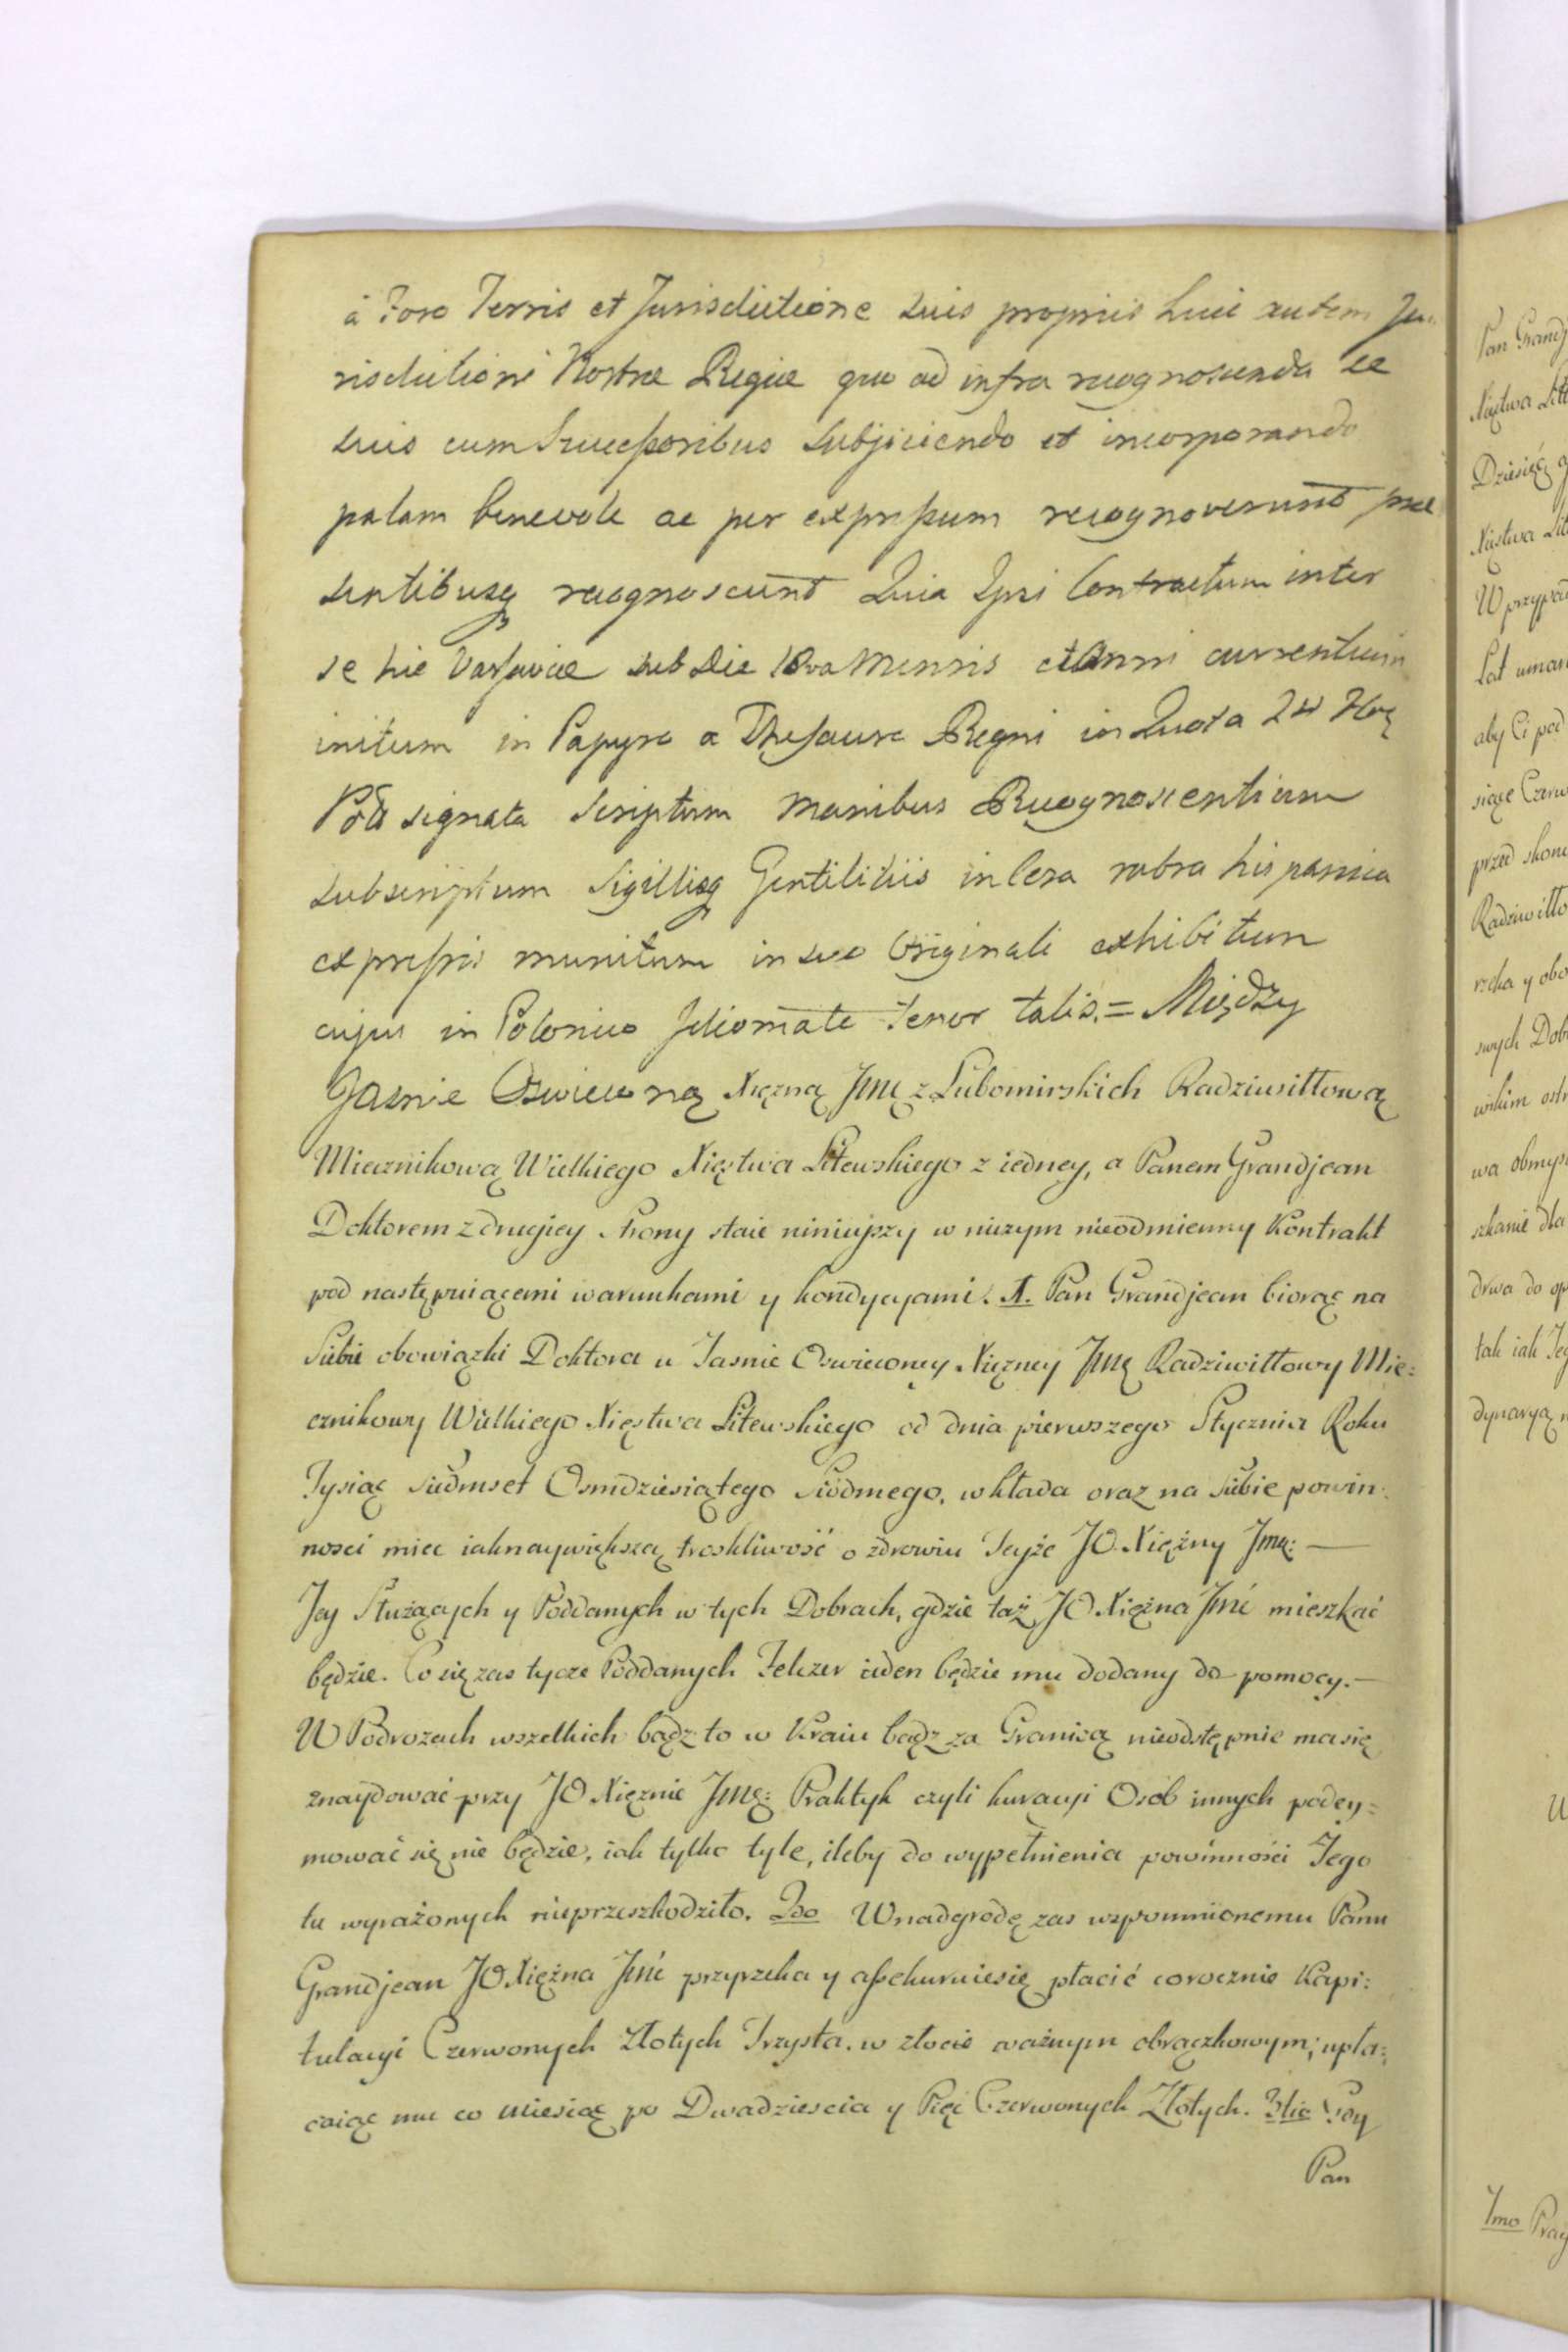 à Foro Terris et Jurisdictione suis propriis huic autem Ju
risdictioni Nostræ Regiæ quo ad infra recognoscenda se
suis cum Successoribus subjiciendo et incorporando
palam benevole ac per expressum recognoverunt præ
sentibusq recognoscunt Quia Ipsi Contractum inter
se hic Varsaviæ sub Die Mensis et Anni currentium
initum in Papyro a Thesauro Regni in Quota 24
signata Scriptum manibus Recognoscentium
subscriptum Sigillisq Gentilitiis in cera rubra hispanica
expressis munitum in suo Originali exhibitum
cujus in Polonico Idiomate tenor talis. = Między
Jasnie Oswieconą Xięzną Jmę z Lubomirskich Radziwiłłową
Miecznikową Wielkiego Xięstwa Litewskiego z iedney, a Panem Grandjean
Doktorem z drugiey strony staie ninieyszy w niczym nieodmienny Kontrakt
pod następuiącemi warunkami y kondycyami. 1. Pan Grandjean biorąc na
Siebie obowiązki Doktora u Jasnie Oswieconey Xięzney Jmę Radziwiłłowy Mie=
cznikowy Wielkiego Xięstwa Litewskiego od dnia pierwszego Stycznia Roku
Tysiąc siedmset Osmdziesiątego Siódmego, wkłada oraz na siebie powin:
nosci miec iaknaywiększą troskliwość o zdrowiu Teyże JO. Xiężny Jmę: —
Jey Służących y Poddanych w tych Dobrach, gdzie taż JO Xiężna Jmć mieszkać
będzie. Co się zas tycze Poddanych Felczer ieden będzie mu dodany do pomocy. —
W Podrozach wszelkich bądz to w Kraiu bądz za Granicą nieodstępnie ma się
znaydować przy JO Xięznie Jmę: Praktyk czyli kuracyi Osob innych podey=
mować się nie będzie, iak tylko tyle, ileby do wypełnienia powinności Jego
tu wyrażonych nieprzeszkodziło. 2do W nadgrodę zas wspomnionemu Panu
Grandjean JO Xiężna Jmć przyrzeka y assekuruie się płacić corocznie Kapi:
tulacyi Czerwonych Złotych Trzysta. w złocie ważnym obrączkowym; upła:
caiąc mu co Miesiąc po Dwadziescia y Pięć Czerwonych Złotych. 3tio Gdy
Pan